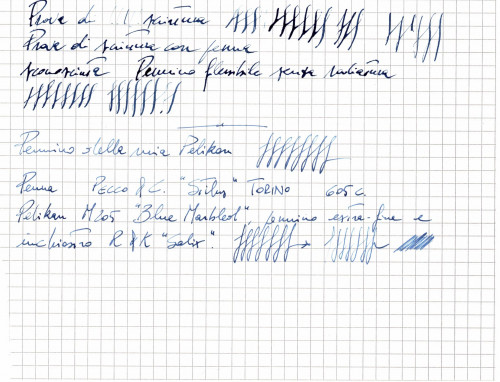 Prova di scrittura
Prova di scrittura con penna
sconosciuta Pennino flessibile senza
Pennino della mia Pelikan
Penna PECCO & C. "Stilus" TORINO 605 C.
Pelikan M205 "Blue Marbled", pennino extra-fine e
inchiostro R & K "Salix".